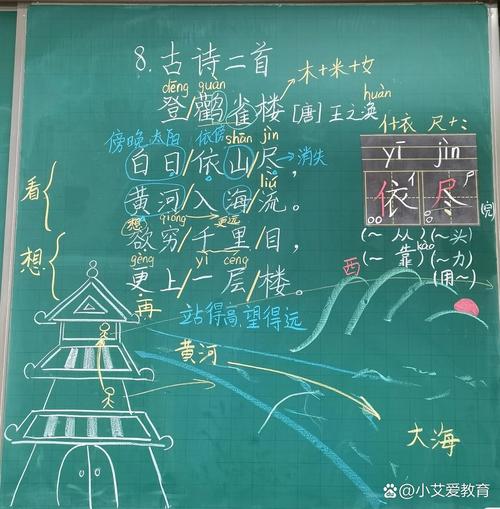 8.古诗二首
dēng guàn
木+米+女
huàn
登/鹳雀楼 [唐]王之涣
傍晚 太阳 依傍 shān jìn
白日/依山/尽,→消失
liú
黄河/入海/流。
想 qióng 更远
欲穷/千里/目,
gèng yì céng
更上/一层/楼。
再
看
想
什衣 尺十:
yī jìn
依 尽
(~从)(~头)
kào
(~靠)(~力)
(用~)
西
站得高,望得远
黄河
大海
小艾爱教育